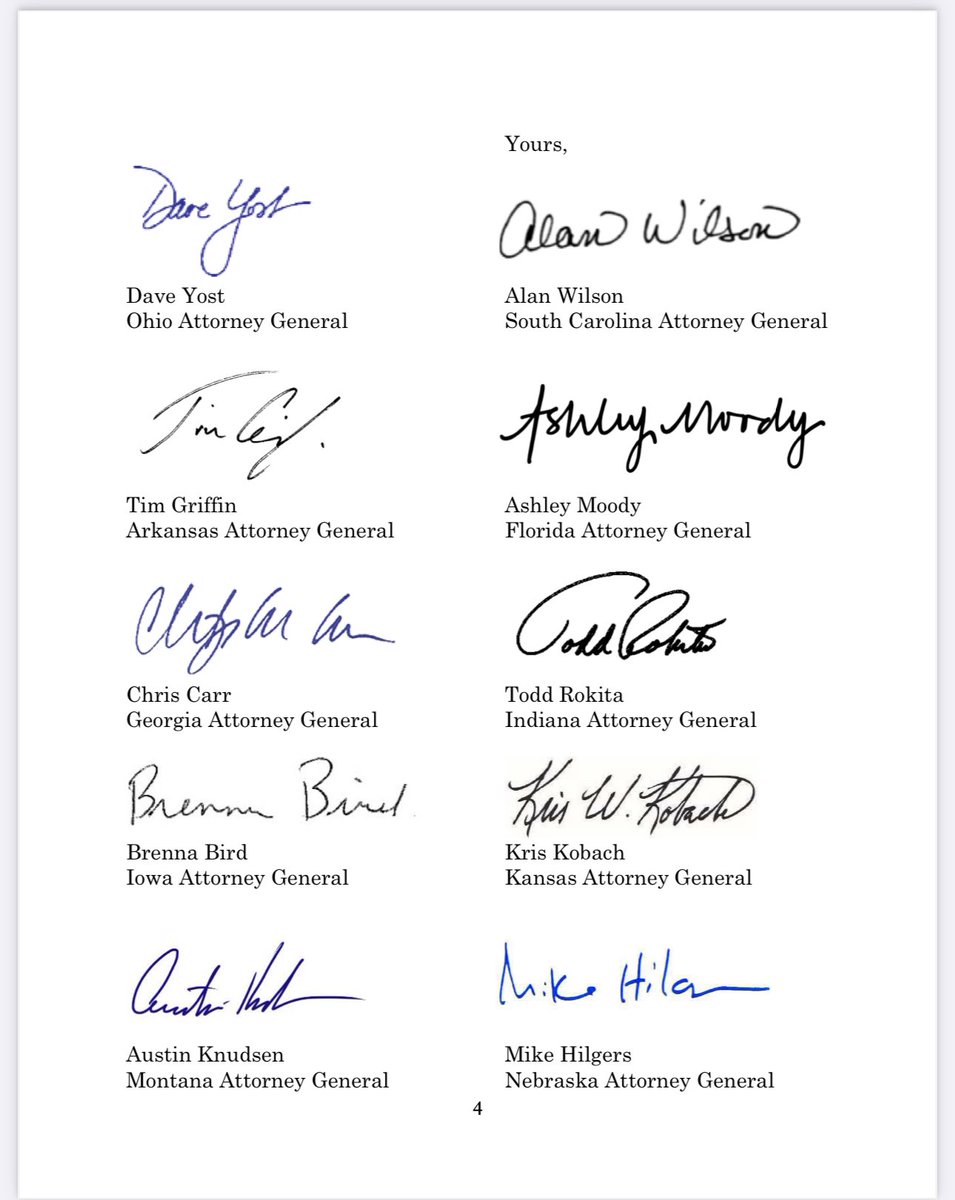 Yours,
Dave Yost
Alan Wilson
Dave Yost
Ohio Attorney General
Alan Wilson
South Carolina Attorney General
Ashley Moody
Tim Griffin
Arkansas Attorney General
Ashley Moody
Florida Attorney General
Todd Rokita
Chris Carr
Georgia Attorney General
Todd Rokita
Indiana Attorney General
Brenna Bird
Kris W. Kobach
Brenna Bird
Iowa Attorney General
Kris Kobach
Kansas Attorney General
Mike
Austin Knudsen
Montana Attorney General
Mike Hilgers
Nebraska Attorney General
4